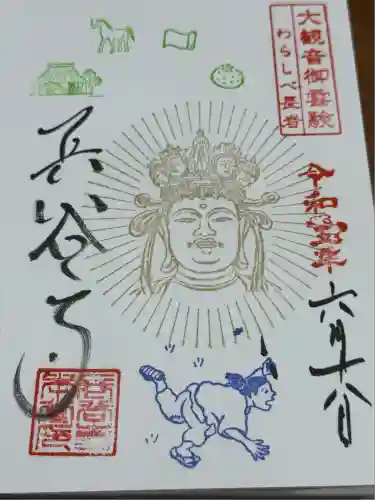 大観音御霊験
わらしべ長者
令和五年
六月十八日
長谷寺